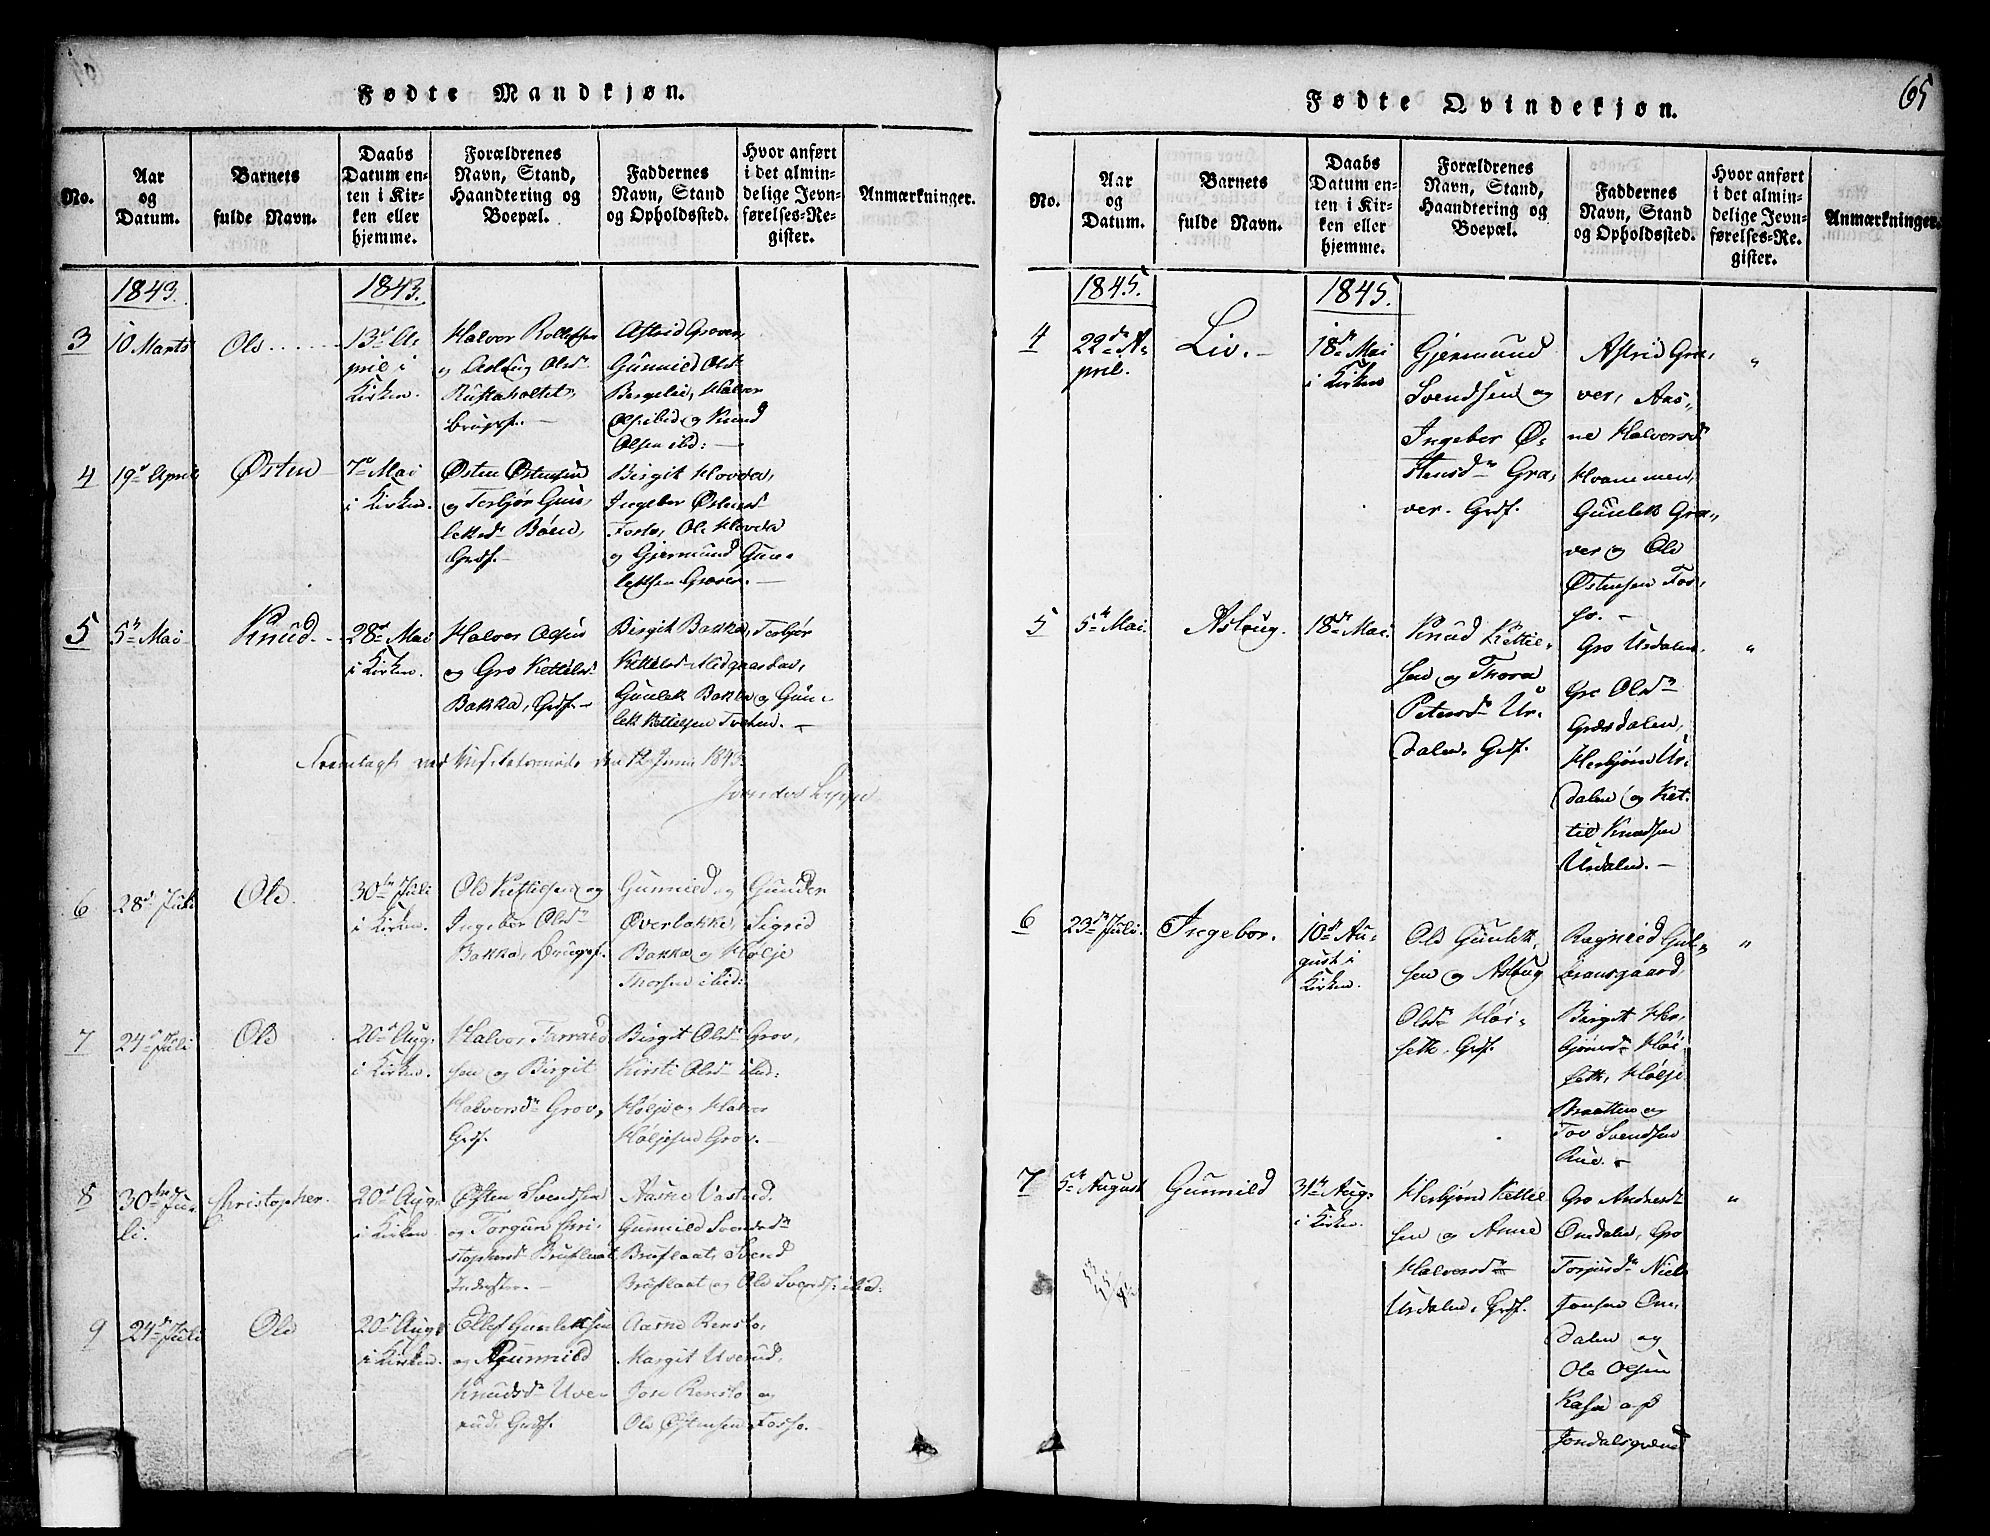 Fødte Mandkjøn.
No.
Aar
og
Datum.
Barnets
fulde Navn.
Daabs
Datum en-
ten i Kir-
ken eller
hjemme.
Forældrenes
Navn, Stand,
Haandtering og
Boepæl.
Faddernes
Navn, Stand
og Opholdssted.
Hvor anført
i det almin-
delige Jevn-
førelses-Re-
gister.
Anmærkninger.
1843.
1843.
3
10 Marts
Ole
13de A-
pril i
Kirken.
Halvor
og Aslaug Olsd.
Rustaholtet,
Brugsf.
Astrid Graver,
Gunnild Olsd.
Halvor
Ols. ibid og Knud
Olsen ibd:
4
19de April
Østen
7de Mai
i Kirken.
Østen Østensen
og Torbjør Gun-
leksd. Bøen,
Grdf.
Birgit Hovda,
Ingebor Østensd.
Fosso, Ole Hovda
og Gjermund Gun-
leksen Graver.
5
5te Mai
Knud.
28de Mai
i Kirken.
Halvor Olsen
og Gro Kettilsd.
Bakka, Grdf.
Birgit Bakka, Torbjør
Kettilsd. Midgaarden,
Gunlek Bakka og Gun-
lek Kettilsen Tveten.
Fremlagt ved Visitatsmøde den 12 Juni 1843.
6
28de Juli
Ole.
30te Juli
i Kirken.
Ole Kettilsen og
Ingebor Olsdr
Bakka, Brugsf.
Gunnild og Gunder
Øverbakke, Sigrid
Bakka og Hølje
Thorsen ibid:
7
24de Juli
Ole
20de Aug.
i Kirken.
Halvor
sen og Birgit
Halvorsdr Grov,
Grdf.
Birgit Olsdr Grov,
Kirsti Olsdr ibid:
Hølje og Halvor
Høljesen Grov.
8
30te Ju-
li.
Christopher.
20de Aug.
i Kirken.
Østen Svendsen
og Torgun Chri-
stophersd Bruflaat
Inderster.
Aasne Vastved.
Gunnild Svendsdr
Bruflaat, Svend
Bruflaat og Ole Svends. ibid.
9
24de Juli
Ole
20de Aug.
i Kirken.
Ellef Gunleksen
og Gunnild
Knudsdr Uve-
rud, Grdf.
Aasne Renslo,
Margit Uverud,
Jon Renslo og
Ole Østensen Fosso.
65
Fødte Qvindekjøn.
No.
Aar
og
Datum.
Barnets
fulde Navn.
Daabs
Datum en-
ten i Kir-
ken eller
hjemme.
Forældrenes
Navn, Stand,
Haandtering og
Boepæl.
Faddernes
Navn, Stand
og Opholdssted.
Hvor anført
i det almin-
delige Jevn-
førelses-Re-
gister.
Anmærkninger.
1845.
1845.
4
22de A-
pril.
Liv.
18de Mai
i Kirken
Gjermund
Svendsen og
Ingebor Ø-
stensdr Gra-
ver. Grdf.
Astrid Gra-
ver, Aas-
ne Halvorsdr
Hvammen,
Gunlek Gra-
ver og Ole
Østensen Fos-
so.
"
5
5te Mai.
Aslaug.
18de Mai.
Knud Kettil-
sen og Thora
Petersdr Ur-
dalen. Grdf.
Gro Urdalen,
Gro Olsdr
Græsdalen,
Herbjørn Ur-
dalen og Ket-
til Knudsen
Urdalen.
"
6
23de Juli.
Ingebor.
10de Au-
gust i
Kirken.
Ole Gunlek-
sen og Aslaug
Olsdr Høi-
seth. Grdf.
Ragnild Gul-
bransgaard,
Birgit Her-
bjønsdr Høi-
seth, Hølje
Braatten og
Tov Svendsen
Rue.
"
7
5te August
Gunnild
31te Aug.
i Kirken.
Herbjørn Kettil
sen og Anne
Halvorsdr
Urdalen, Grdf.
Gro Andersdr
Omdalen, Gro
Torjusdr Niels
Jonsen Om-
dalen og
Ole Olsen
Kasa af
Jondalsgrend
"